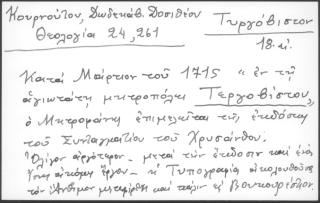 Κουρνούτου, Δωδεκάβ. Δοσιθέου
Θεολογία 24, 261
Τυργόβιστον
18.κἑ.
Κατὰ Μάρτιον τοῦ 1715 « ἐν τῇ
ἁγιωτάτῃ μητροπόλει Τεργοβίστου,
ὁ Μητροφάνης ἐπιμελεῖται τῆς ἐκδόσεως
τοῦ Συνταγματίου τοῦ Χρυσάνθου.
Ὀλίγον ἀργότερον - μετὰ τὴν ἔκδοσιν καὶ ἑνὸς
ἴσως ἀκόμη ἔργου - ἡ Τυπογραφία ἀκολουθοῦσα
τὸν Ἄνθιμον μετεφέρθη καὶ πάλιν εἰς Βουκουρέστιον.